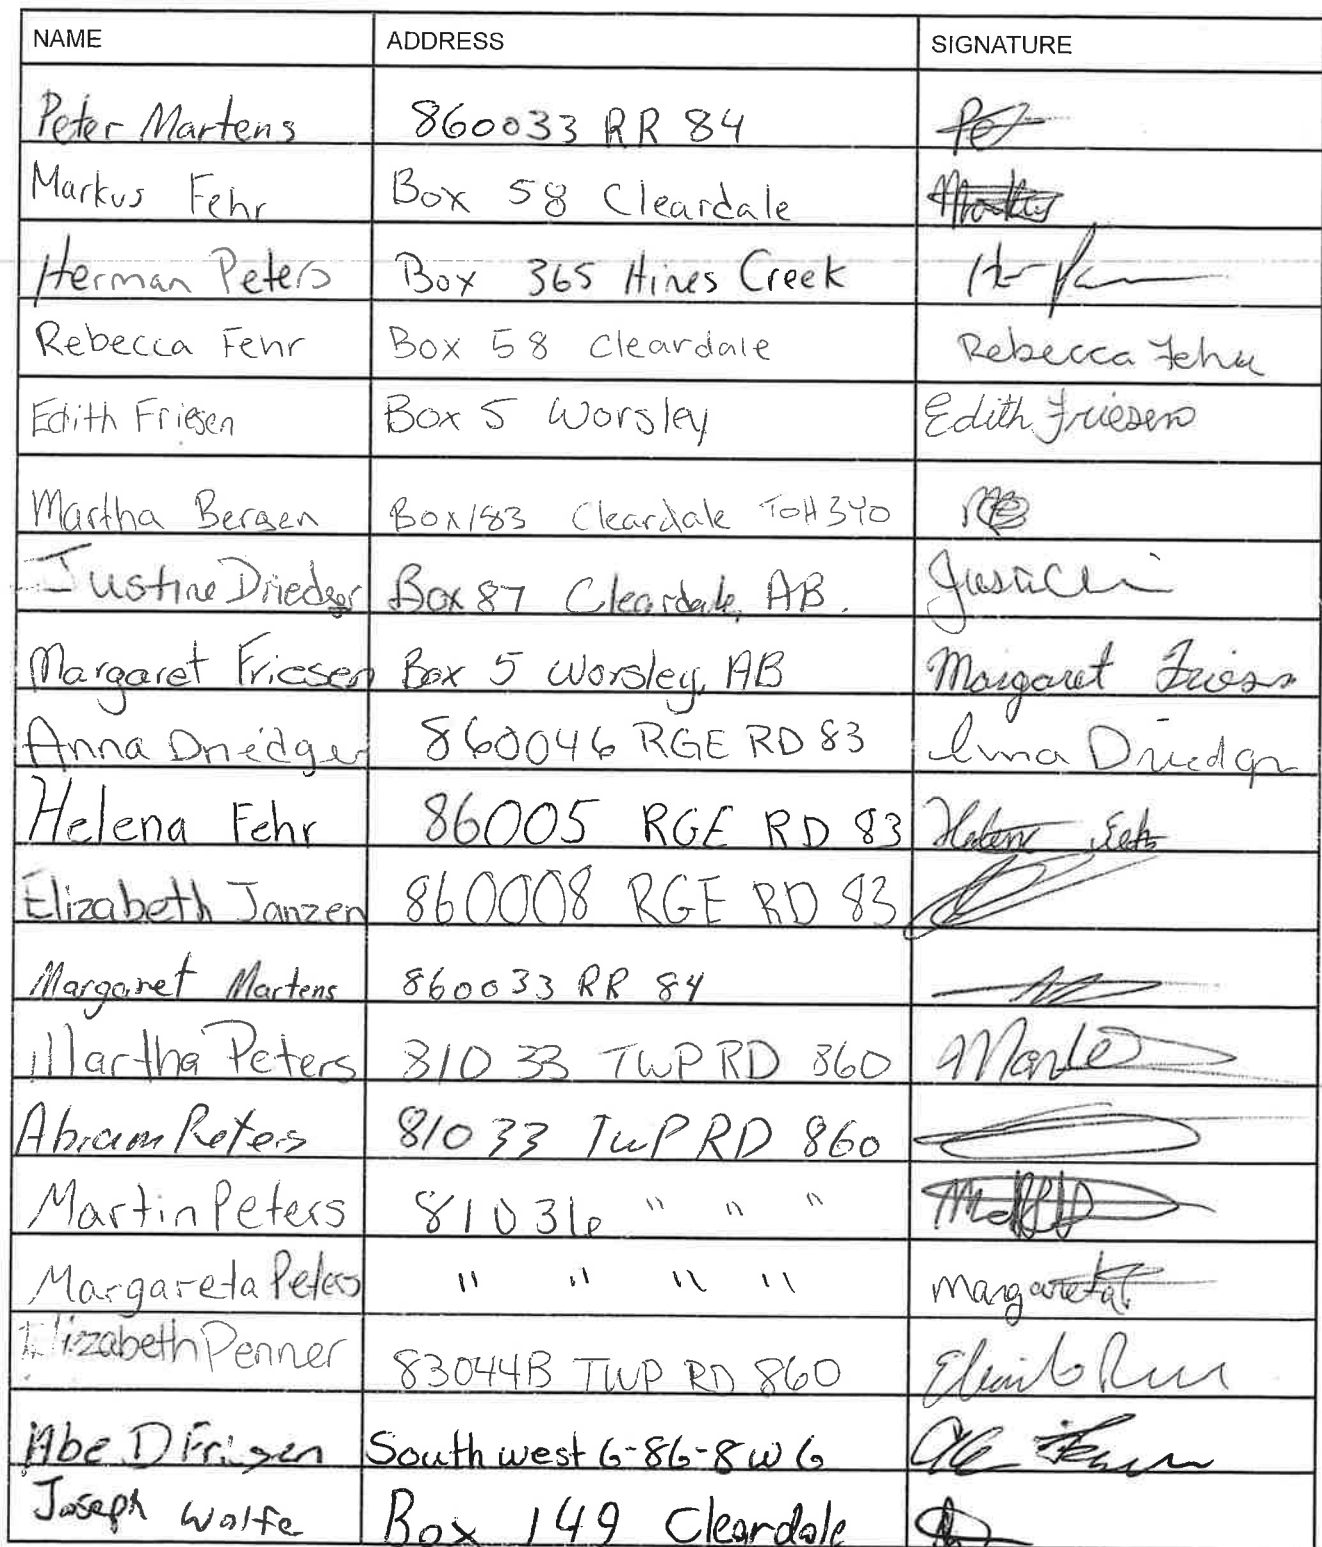 NAME ADDRESS SIGNATURE
Peter Martens 860033 RR 84
Markus Fehr Box 58 Cleardale
Herman Peters Box 365 Hines Creek
Rebecca Fehr Box 58 Cleardale Rebecca Fehr
Edith Friesen Box 5 Worsley Edith Friesen
Martha Bergen Box 183 Cleardale T0H 3Y0
Justine Driedger Box 87 Cleardale, AB.
Margaret Friesen Box 5 Worsley, AB Margaret Friesen
Anna Driedger 860046 RGE RD 83 Anna Driedger
Helena Fehr 86005 RGE RD 83 Helena Feh
Elizabeth Janzen 860008 RGE RD 83
Margaret Martens 860033 RR 84
Martha Peters 81033 TWP RD 860
Abram Peters 81033 TWP RD 860
Martin Peters 81036 " " "
Margareta Peters " " " " Margareta P.
Elizabeth Penner 83044B TWP RD 860
Abe D Friesen Southwest 6-86-8 W 6
Joseph Wolfe Box 149 Cleardale